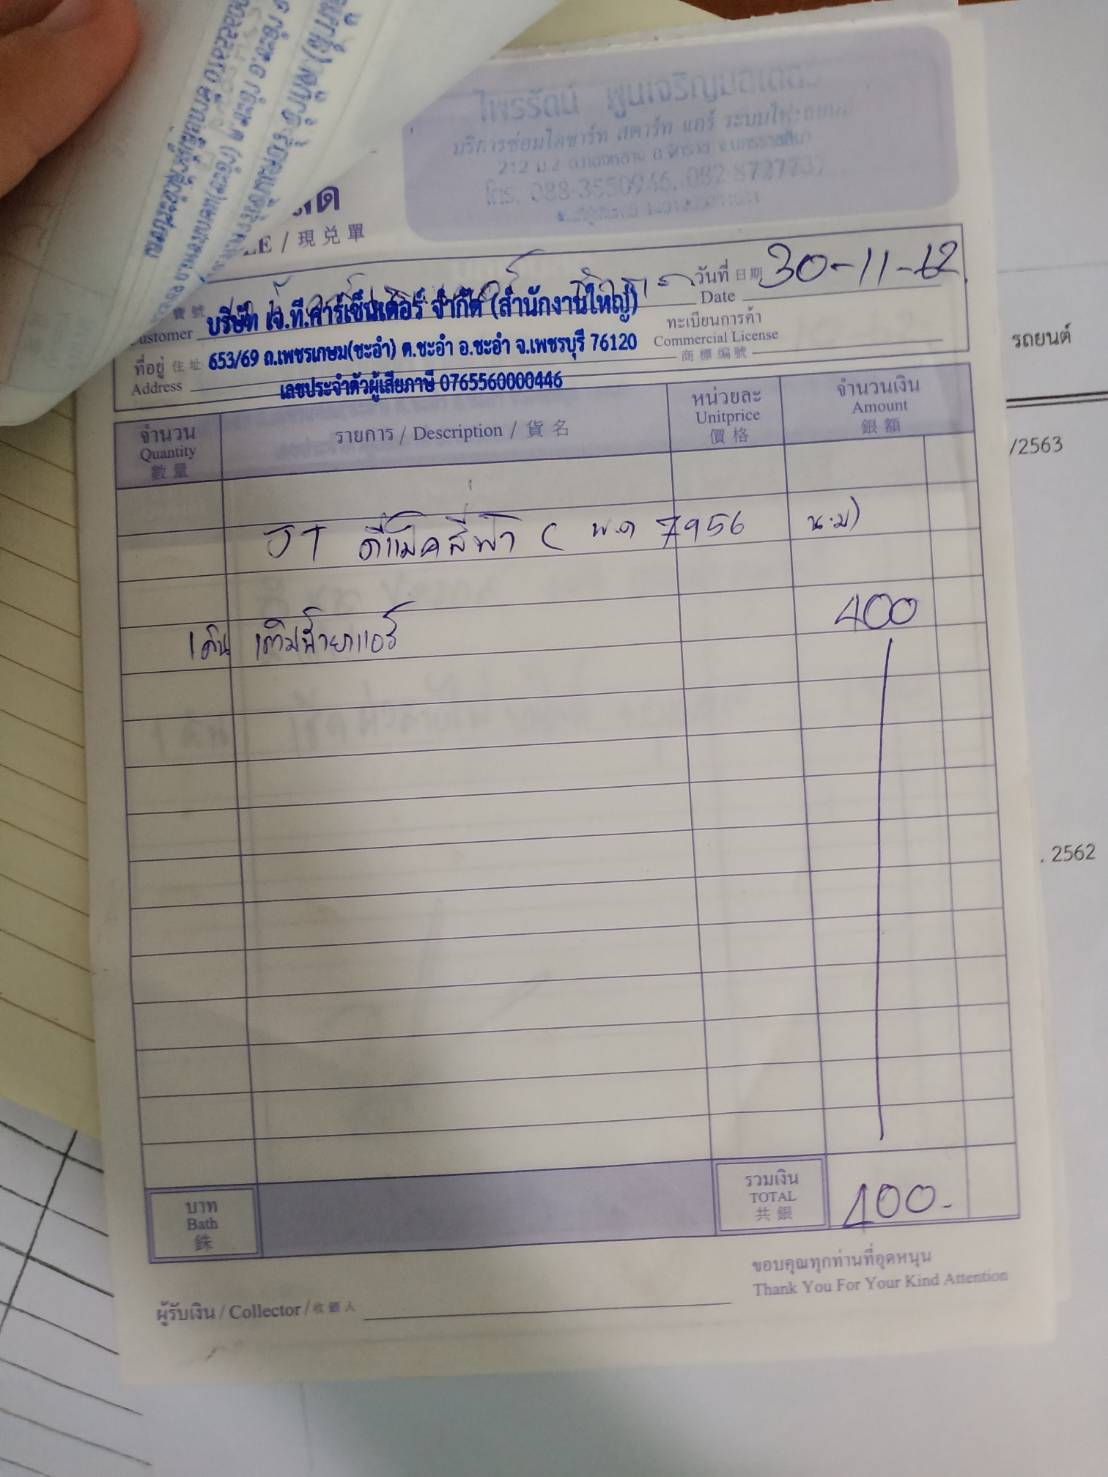 ไพรรัตน์ พูนเจริญ
บริการซ่อมไดชาร์ท สตาร์ท แอร์ ระบบไฟ
212 ม.2
โทร. 088-3550946, 082
LE / 現兌單
วันที่ 日期 30-11-62
Date
Customer 寶號 บริษัท เจ.ที.คาร์เซ็นเตอร์ จำกัด (สำนักงานใหญ่)
ทะเบียนการค้า
Commercial License
商標編號
ที่อยู่ 住址 653/69 ถ.เพชรเกษม(ชะอำ) ต.ชะอำ อ.ชะอำ จ.เพชรบุรี 76120
Address เลขประจำตัวผู้เสียภาษี 0765560000446
รถยนต์
/2563
จำนวน
Quantity
數量
รายการ / Description / 貨名
หน่วยละ
Unitprice
價格
จำนวนเงิน
Amount
銀額
JT ดีแม็คสีฟ้า ( 7956 น.ม)
1 คัน เติมน้ำยาแอร์ 400
. 2562
บาท
Bath
銖
รวมเงิน
TOTAL
共銀
400.-
ขอบคุณทุกท่านที่อุดหนุน
Thank You For Your Kind Attention
ผู้รับเงิน / Collector / 收銀人